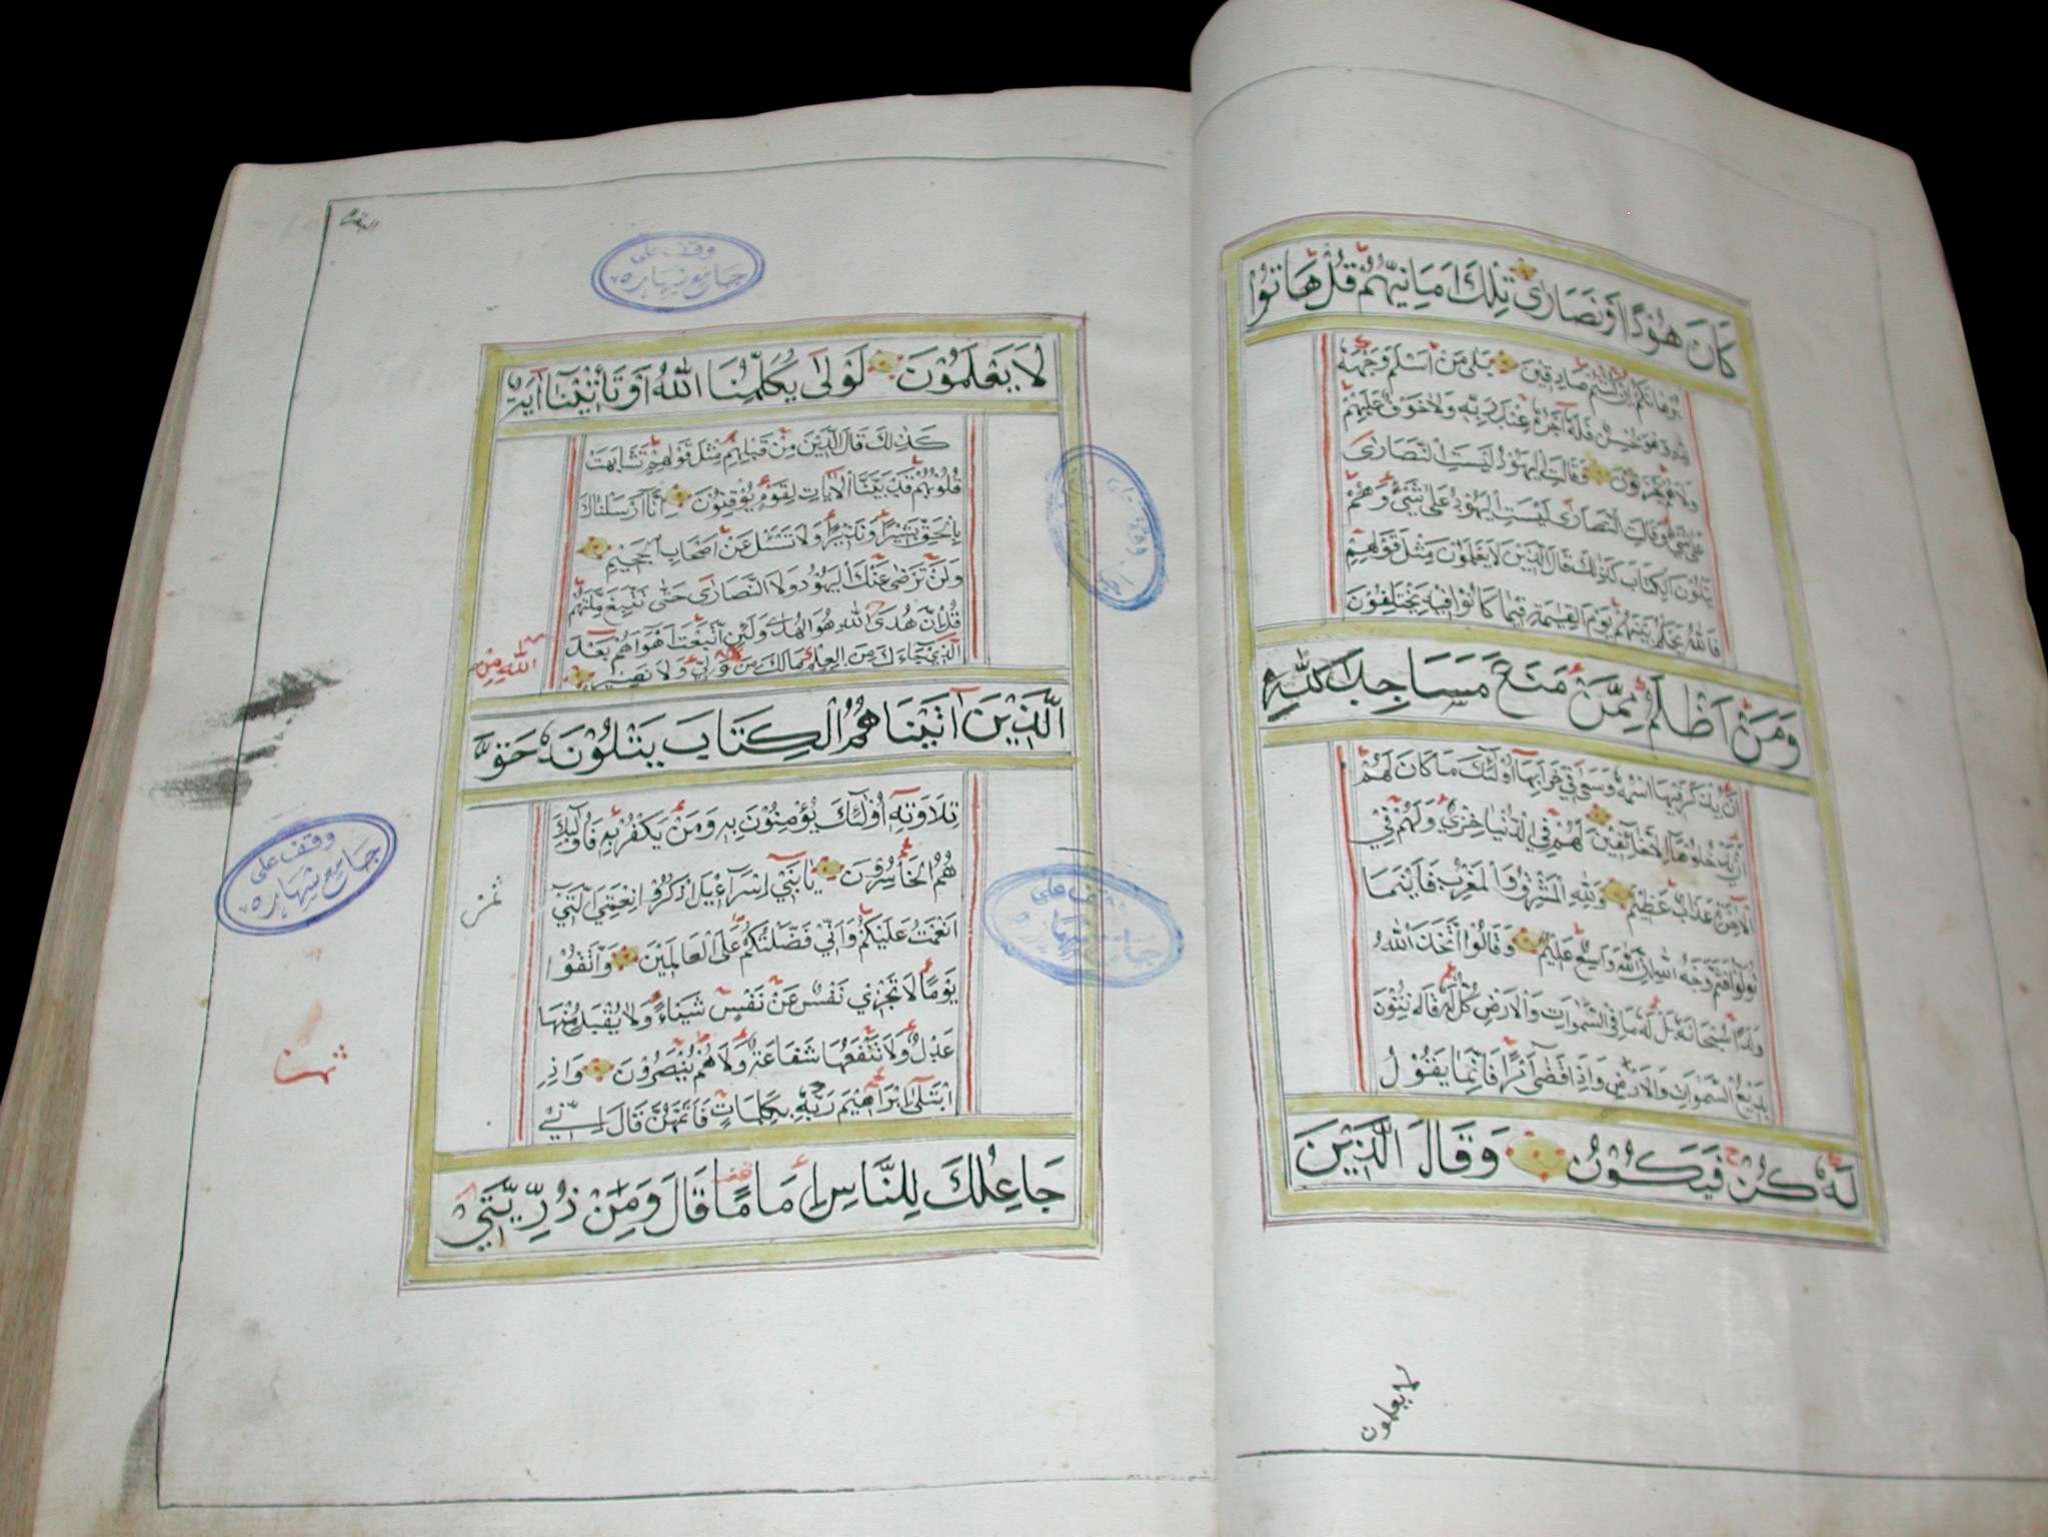 كَانَ هُوْدًا اَوْ نَصَارٰى تِلْكَ اَمَانِيُّهُمْ قُلْ هَاتُوْا
بُرْهَانَكُمْ اِنْ كُنْتُمْ صَادِقِيْنَ بَلٰى مَنْ اَسْلَمَ وَجْهَهٗ
لِلّٰهِ وَهُوَ مُحْسِنٌ فَلَهٗٓ اَجْرُهٗ عِنْدَ رَبِّهٖ وَلَا خَوْفٌ عَلَيْهِمْ
وَلَا هُمْ يَحْزَنُوْنَ وَقَالَتِ الْيَهُوْدُ لَيْسَتِ النَّصَارٰى
عَلٰى شَيْءٍ وَقَالَتِ النَّصَارٰى لَيْسَتِ الْيَهُوْدُ عَلٰى شَيْءٍ وَهُمْ
يَتْلُوْنَ الْكِتَابَ كَذٰلِكَ قَالَ الَّذِيْنَ لَا يَعْلَمُوْنَ مِثْلَ قَوْلِهِمْ
فَاللّٰهُ يَحْكُمُ بَيْنَهُمْ يَوْمَ الْقِيٰمَةِ فِيْمَا كَانُوْا فِيْهِ يَخْتَلِفُوْنَ
وَمَنْ اَظْلَمُ مِمَّنْ مَنَعَ مَسَاجِدَ اللّٰهِ
اَنْ يُذْكَرَ فِيْهَا اسْمُهٗ وَسَعٰى فِيْ خَرَابِهَا اُولٰٓئِكَ مَا كَانَ لَهُمْ
اَنْ يَدْخُلُوْهَآ اِلَّا خَآئِفِيْنَ لَهُمْ فِي الدُّنْيَا خِزْيٌ وَلَهُمْ فِي
الْاٰخِرَةِ عَذَابٌ عَظِيْمٌ وَلِلّٰهِ الْمَشْرِقُ وَالْمَغْرِبُ فَاَيْنَمَا
تُوَلُّوْا فَثَمَّ وَجْهُ اللّٰهِ اِنَّ اللّٰهَ وَاسِعٌ عَلِيْمٌ وَقَالُوا اتَّخَذَ اللّٰهُ
وَلَدًا سُبْحَانَهٗ بَلْ لَهٗ مَا فِي السَّمٰوَاتِ وَالْاَرْضِ كُلٌّ لَهٗ قَانِتُوْنَ
بَدِيْعُ السَّمٰوَاتِ وَالْاَرْضِ وَاِذَا قَضٰٓى اَمْرًا فَاِنَّمَا يَقُوْلُ
لَهٗ كُنْ فَيَكُوْنُ وَقَالَ الَّذِيْنَ
لا يعلمون
البقرة
وقف على
جامع شهاره
لَا يَعْلَمُوْنَ لَوْلَا يُكَلِّمُنَا اللّٰهُ اَوْ تَأْتِيْنَآ اٰيَةٌ
كَذٰلِكَ قَالَ الَّذِيْنَ مِنْ قَبْلِهِمْ مِثْلَ قَوْلِهِمْ تَشَابَهَتْ
قُلُوْبُهُمْ قَدْ بَيَّنَّا الْاٰيَاتِ لِقَوْمٍ يُوْقِنُوْنَ اِنَّآ اَرْسَلْنَاكَ
بِالْحَقِّ بَشِيْرًا وَنَذِيْرًا وَلَا تُسْئَلُ عَنْ اَصْحَابِ الْجَحِيْمِ
وَلَنْ تَرْضٰى عَنْكَ الْيَهُوْدُ وَلَا النَّصَارٰى حَتّٰى تَتَّبِعَ مِلَّتَهُمْ
قُلْ اِنَّ هُدَى اللّٰهِ هُوَ الْهُدٰى وَلَئِنِ اتَّبَعْتَ اَهْوَآءَهُمْ بَعْدَ
الَّذِيْ جَآءَكَ مِنَ الْعِلْمِ مَا لَكَ مِنَ وَلِيٍّ وَلَا نَصِيْرٍ
اللّٰهِ مِنْ
الَّذِيْنَ اٰتَيْنَاهُمُ الْكِتَابَ يَتْلُوْنَهٗ حَقَّ
تِلَاوَتِهٖٓ اُولٰٓئِكَ يُؤْمِنُوْنَ بِهٖ وَمَنْ يَكْفُرْ بِهٖ فَاُولٰٓئِكَ
هُمُ الْخَاسِرُوْنَ يَا بَنِيْٓ اِسْرَآءِيْلَ اذْكُرُوْا نِعْمَتِيَ الَّتِيْٓ
اَنْعَمْتُ عَلَيْكُمْ وَاَنِّيْ فَضَّلْتُكُمْ عَلَى الْعَالَمِيْنَ وَاتَّقُوْا
يَوْمًا لَا تَجْزِيْ نَفْسٌ عَنْ نَفْسٍ شَيْئًا وَلَا يُقْبَلُ مِنْهَا
عَدْلٌ وَلَا تَنْفَعُهَا شَفَاعَةٌ وَلَا هُمْ يُنْصَرُوْنَ وَاِذِ
ابْتَلٰٓى اِبْرَاهِيْمَ رَبُّهٗ بِكَلِمَاتٍ فَاَتَمَّهُنَّ قَالَ اِنِّيْ
جَاعِلُكَ لِلنَّاسِ اِمَامًا قَالَ وَمِنْ ذُرِّيَّتِيْ
ثمن
وقف على
جامع شهاره
ثمن